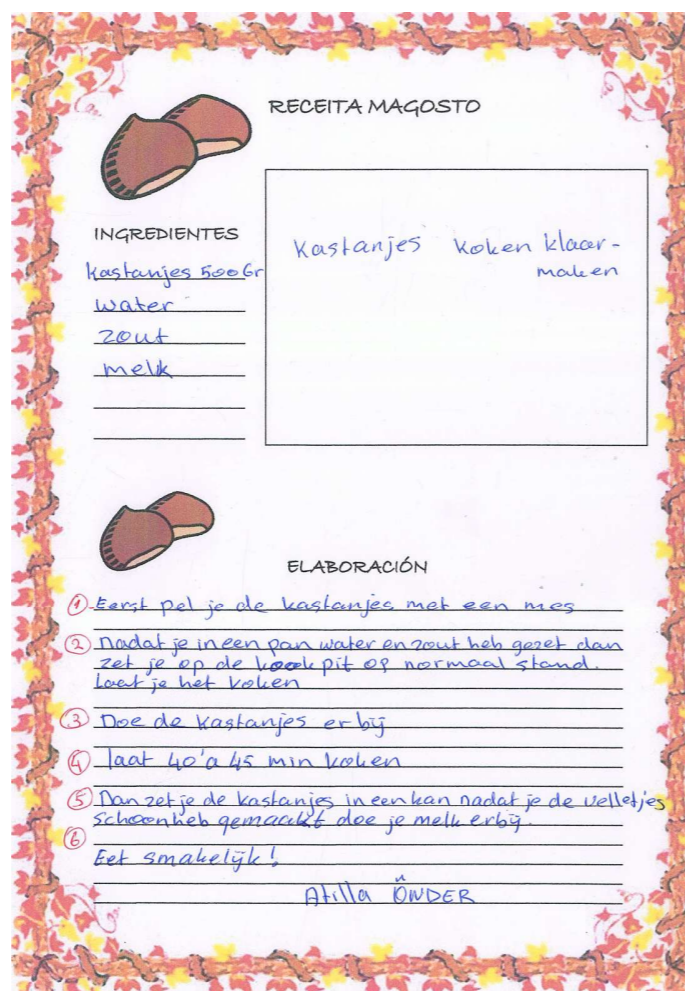 RECEITA MAGOSTO
INGREDIENTES
kastanjes 500Gr
water
zout
melk
Kastanjes koken klaar-
maken
ELABORACIÓN
1 Eerst pel je de kastanjes met een mes
2 nadat je in een pan water en zout heb gezet dan
zet je op de kookpit op normaal stand.
Laat je het koken
3 Doe de kastanjes erbij
4 laat 40'a 45 min koken
5 Dan zet je de kastanjes in een kan nadat je de velletjes
schoon heb gemaakt doe je melk erbij.
6
Eet smakelijk!
Atilla ÖNDER